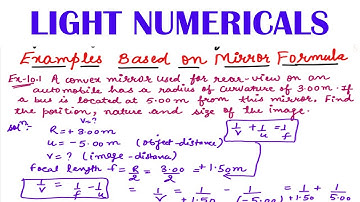 LIGHT NUMERICALS
Examples Based on Mirror Formula
Ex-10.1 A convex mirror used for rear-view on an
automobile has a radius of curvature of 3.00m. If
a bus is located at 5.00m from this mirror. Find
the position, nature and size of the image.
Solⁿ: v=?
R=+3.00m
u=-5.00m (object-distance)
v=? (image-distance)
1/v + 1/u = 1/f
focal length f = R/2 = 3.00/2 = +1.50m
1/v = 1/f - 1/u
= 1/v = 1/+1.50 - 1/(-5.00) = 1/+1.50 + 1/5.00